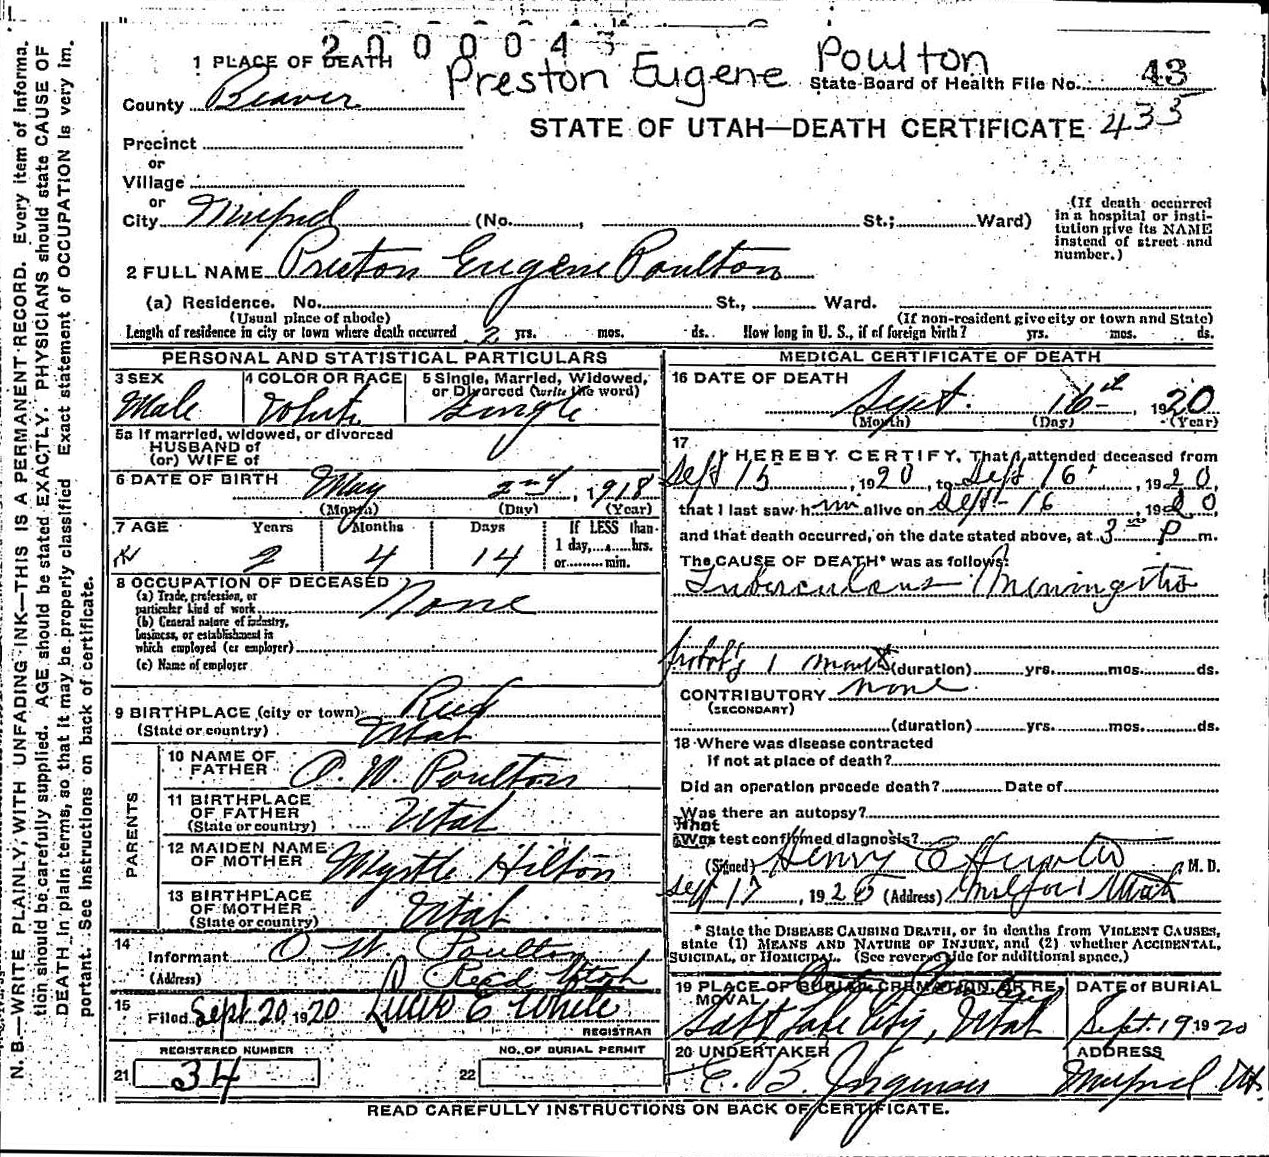 2000043
Preston Eugene Poulton
1 PLACE OF DEATH
State Board of Health File No. 43
County Beaver
STATE OF UTAH—DEATH CERTIFICATE 435
Precinct
or
Village
or
City Milford (No. , St.; Ward)
(If death occurred in a hospital or insti-
tution give its NAME instead of street and number.)
2 FULL NAME Preston Eugene Poulton
(a) Residence. No. St., Ward.
(Usual place of abode) (If non-resident give city or town and State)
Length of residence in city or town where death occurred 2 yrs. mos. ds. How long in U. S., if of foreign birth? yrs. mos. ds.
PERSONAL AND STATISTICAL PARTICULARS
3 SEX 4 COLOR OR RACE 5 Single, Married, Widowed,
or Divorced (write the word)
Male White Single
5a If married, widowed, or divorced
HUSBAND of
(or) WIFE of
6 DATE OF BIRTH May 2nd, 1918
(Month) (Day) (Year)
7 AGE Years Months Days If LESS than
1 day, hrs.
or min.
2 4 14
8 OCCUPATION OF DECEASED None
(a) Trade, profession, or
particular kind of work
(b) General nature of industry,
business, or establishment in
which employed (or employer)
(c) Name of employer
9 BIRTHPLACE (city or town) Reed
(State or country) Utah
PARENTS
10 NAME OF
FATHER O. W. Poulton
11 BIRTHPLACE
OF FATHER
(State or country) Utah
12 MAIDEN NAME
OF MOTHER Myrtle Hilton
13 BIRTHPLACE
OF MOTHER
(State or country) Utah
14
Informant O. W. Poulton
(Address) Reed Utah
15
Filed Sept 20, 1920 E White
REGISTRAR
REGISTERED NUMBER NO. OF BURIAL PERMIT
21 34 22
MEDICAL CERTIFICATE OF DEATH
16 DATE OF DEATH
Sept. 16th, 1920
(Month) (Day) (Year)
17
I HEREBY CERTIFY, That I attended deceased from
Sept 15, 1920, to Sept 16, 1920,
that I last saw him alive on Sept 16 1920,
and that death occurred, on the date stated above, at 3 P m.
The CAUSE OF DEATH* was as follows:
Tuberculous Meningitis
Prob'y 1 month (duration) yrs. mos. ds.
CONTRIBUTORY none
(SECONDARY)
(duration) yrs. mos. ds.
18 Where was disease contracted
if not at place of death?
Did an operation precede death? Date of
Was there an autopsy?
What
Was test confirmed diagnosis?
(Signed) Henry E , M. D.
Sept 17, 1920 (Address) Milford Utah
* State the DISEASE CAUSING DEATH, or in deaths from VIOLENT CAUSES,
state (1) MEANS AND NATURE OF INJURY, and (2) whether ACCIDENTAL,
SUICIDAL, or HOMICIDAL. (See reverse side for additional space.)
19 PLACE OF BURIAL, CREMATION, OR RE-
MOVAL
Salt Lake City, Utah
DATE of BURIAL
Sept. 19 1920
20 UNDERTAKER
E. B. Jorgensen
ADDRESS
Milford Ut.
READ CAREFULLY INSTRUCTIONS ON BACK OF CERTIFICATE.
N. B.—WRITE PLAINLY, WITH UNFADING INK—THIS IS A PERMANENT RECORD. Every item of informa-
tion should be carefully supplied. AGE should be stated EXACTLY. PHYSICIANS should state CAUSE OF
DEATH in plain terms, so that it may be properly classified Exact statement of OCCUPATION is very im-
portant. See Instructions on back of certificate.